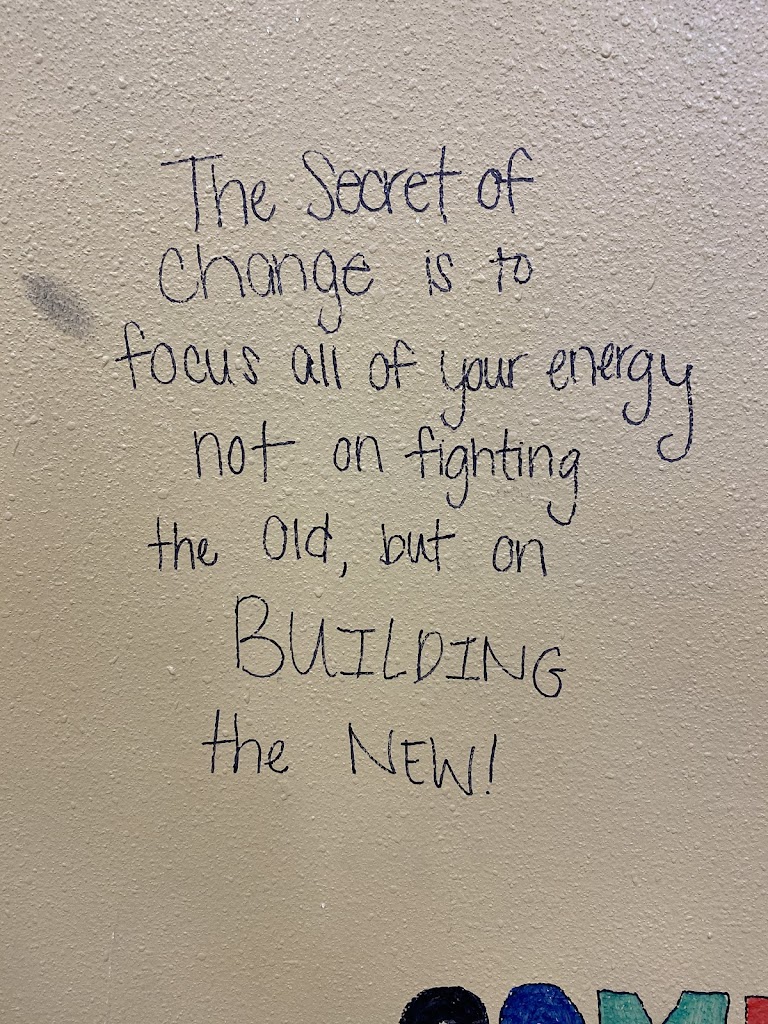 The Secret of
change is to
focus all of your energy
not on fighting
the Old, but on
BUILDING
the NEW!